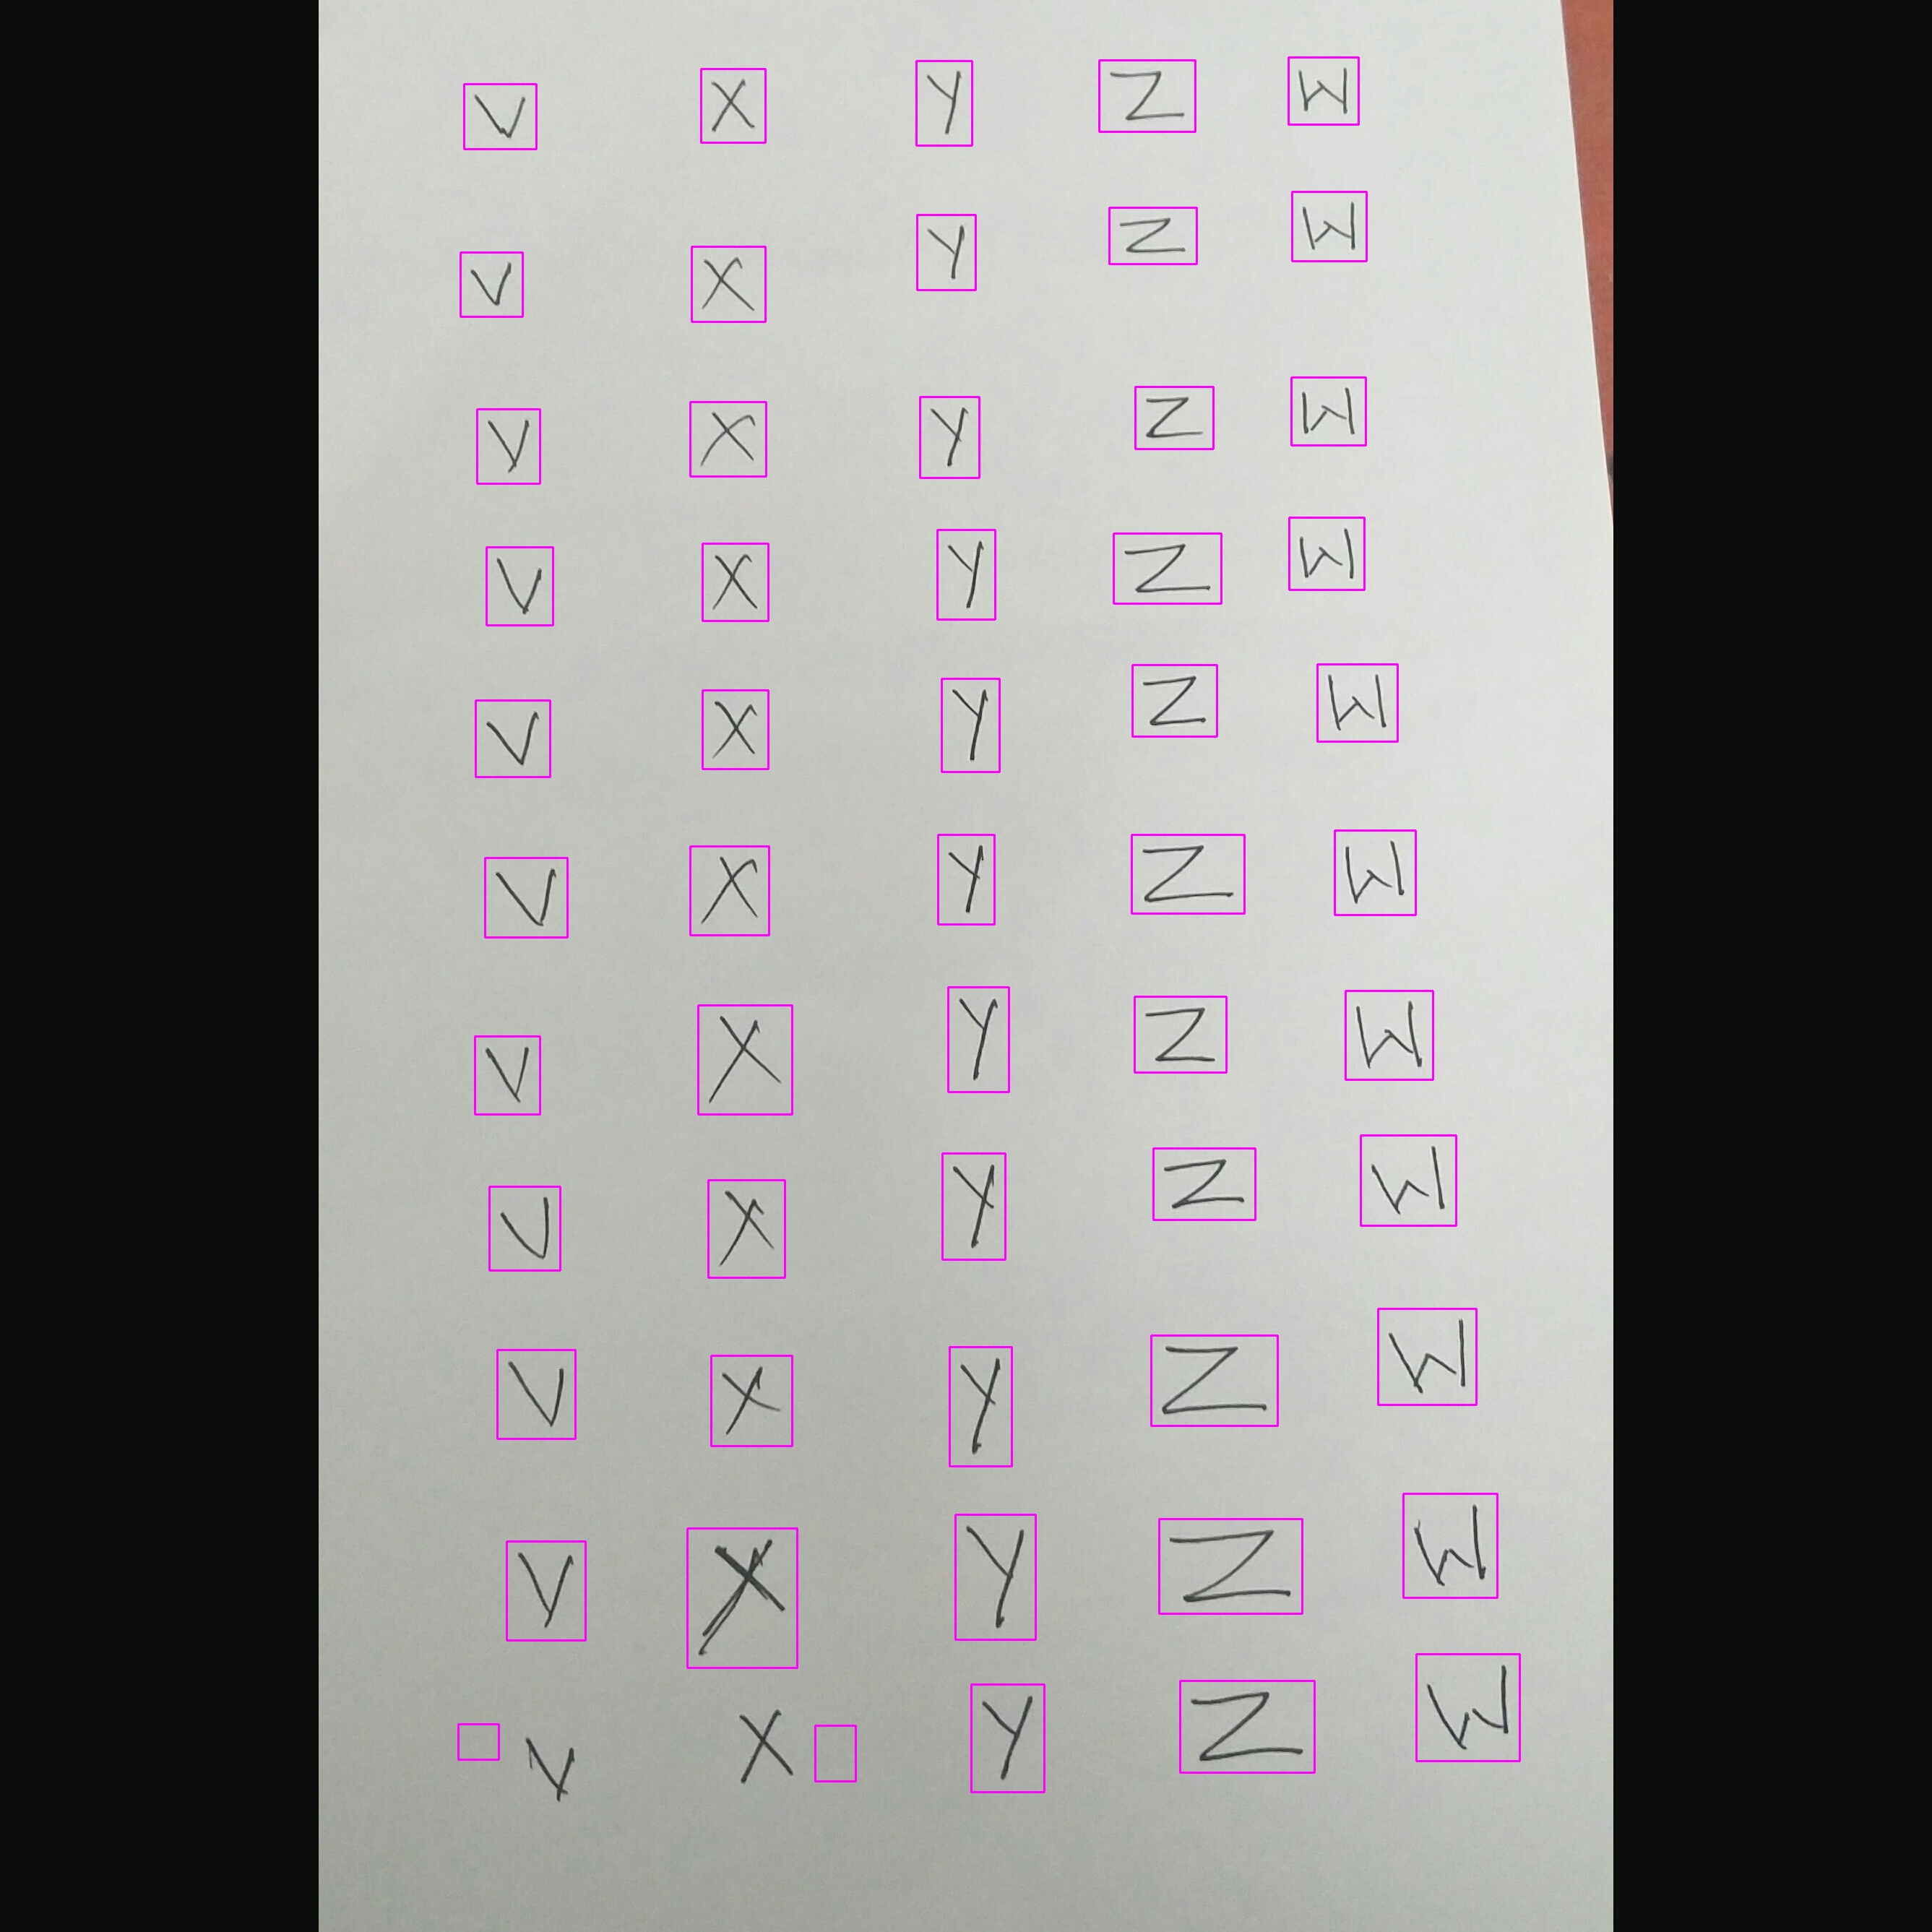 V X Y Z W
V X Y Z W
V X Y Z W
V X Y Z W
V X Y Z W
V X Y Z W
V X Y Z W
V X Y Z W
V X Y Z W
V X Y Z W
V X Y Z W